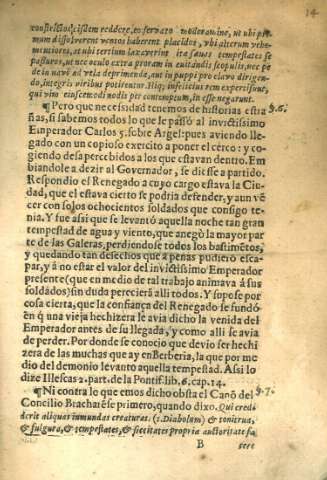 14
constrictus, eisdem reddere, eo servato moderamine, ut ubi pri-
mum dissolverent ventos haberent placidos, ubi alterum vehe-
mentiores, at ubi tertium laxaverint ita sævas tempestates se
pasturos, ut nec oculo extra proram in evitandis scopulis, nec pe
de in navi ad vela deprimenda, aut in puppi pro clavo dirigen-
do, integris viribus potirentur. Hiq; infelicius rem experti sunt,
qui vim eiuscemodi nodis per contemptum, in esse negarunt.
¶Pero que necessidad tenemos de historias estra §.6.
ñas, si sabemos todos lo que le passó al invictissimo
Emperador Carlos 5. sobre Argel: pues aviendo lle-
gado con un copioso exercito a poner el cerco: y co-
giendo desapercebidos a los que estavan dentro. Em
biandole a dezir al Governador, se diesse a partido.
Respondio el Renegado a cuyo cargo estava la Ciu-
dad, que el estava cierto se podria defender, y aun vẽ
cer con solos ochocientos soldados que consigo te-
nia. Y fue assi que se levantó aquella noche tan gran
tempestad de agua y viento, que anegó la mayor par
te de las Galeras, perdiendose todos los bastimẽtos,
y quedando tan desechos que a penas pudierõ esca-
par, y à no estar el valor del invictissimo Emperador
presente (que en medio de tal trabajo animava à sus
soldados) sin duda perecierã alli todos. Y supose por
cosa cierta, que la confiança del Renegado se fundó
en q̃ una vieja hechizera se avia dicho la venida del
Emperador antes de su llegada, y como alli se avia
de perder. Por donde se conocio que devio ser hechi
zera de las muchas que ay en Berberia, la que por me
dio del demonio levanto aquella tempestad. Assi lo
dize Illescas 2. part. de la Pontif. lib. 6. cap. 14.
¶Ni contra lo que emos dicho obsta el Canõ del §.7.
Concilio Bracharẽse primero, quando dixo. Qui credi
derit aliquas immundas creaturas. (s. Diabolum) & tonitrua,
& fulgura, & tempestates, & siccitates propria auctoritate fa
B cere